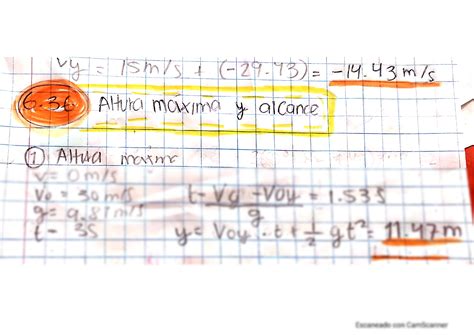 vy = 15m/s + (-29.43) = -14.43 m/s
6.36 Altura maxima y alcance
① Altura maxima
v= 0 m/s
Vo = 30 m/s t= Vy - Voy = 1.53 s
g= 9.81 m/s g
t- 3s y= Voy · t + 1/2 gt² = 11.47 m
Escaneado con CamScanner